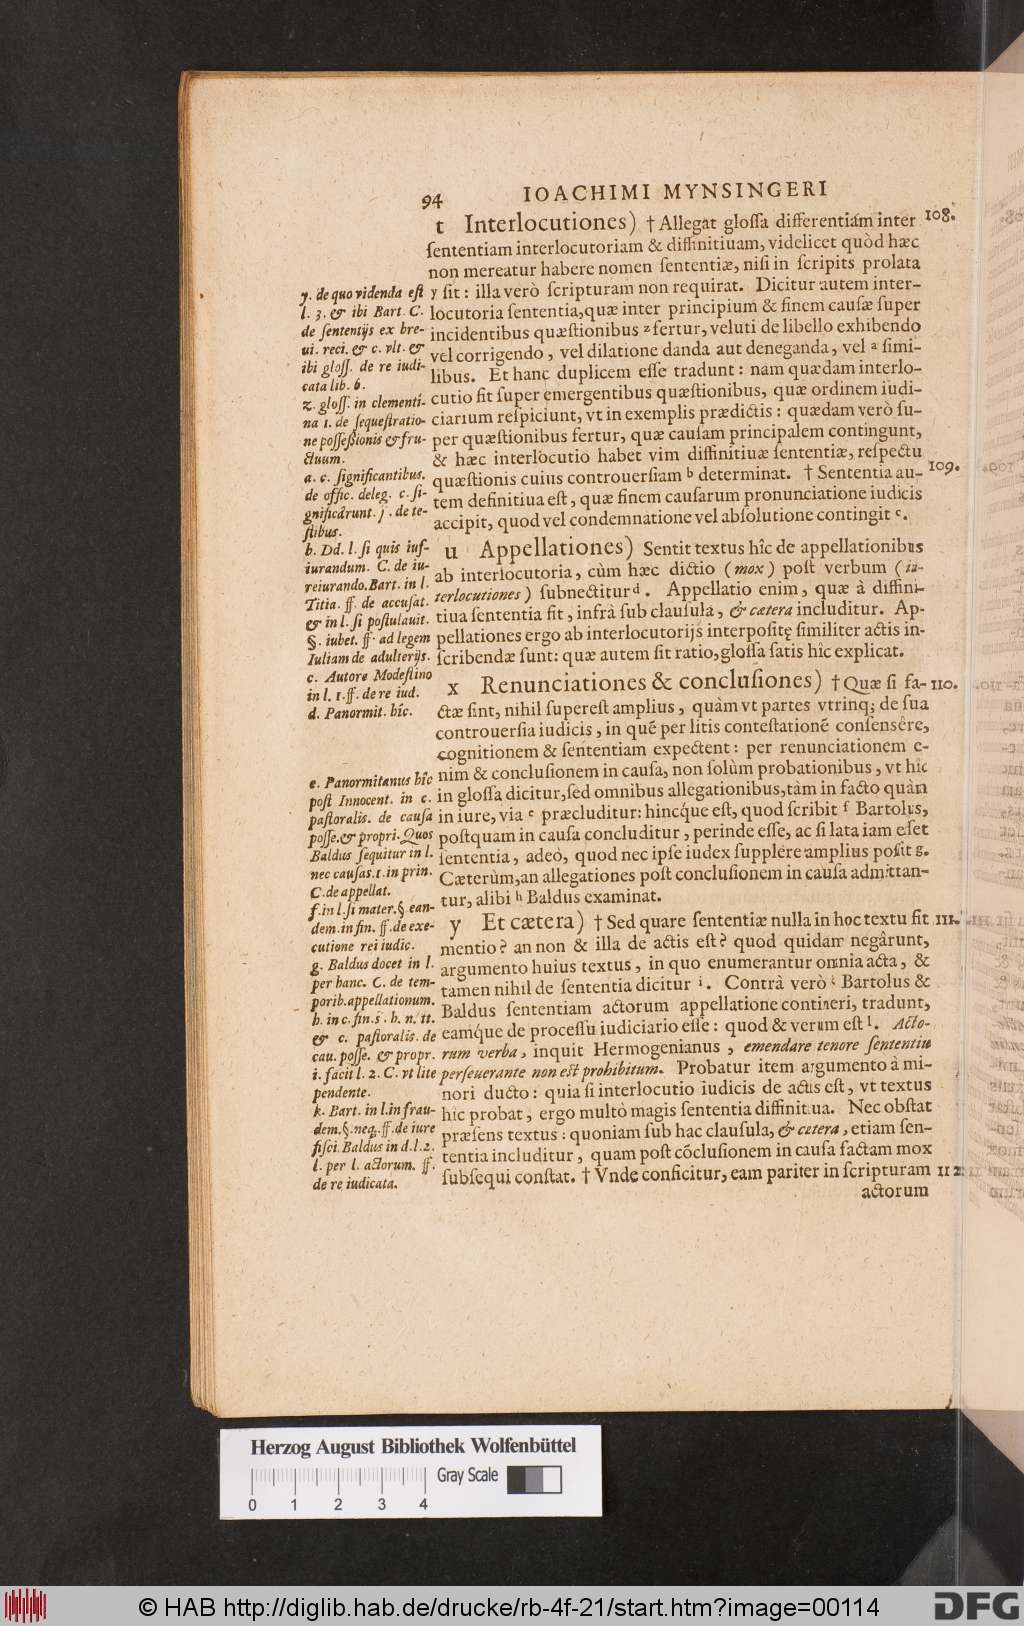 94 IOACHIMI MYNSINGERI
t Interlocutiones) † Allegat gloſſa differentiam inter 108.
ſententiam interlocutoriam & diffinitiuam, videlicet quòd hæc
non mereatur habere nomen ſententiæ, niſi in ſcripits prolata
y ſit: illa verò ſcripturam non requirat. Dicitur autem inter-
locutoria ſententia, quæ inter principium & finem cauſæ ſuper
incidentibus quæſtionibus z fertur, veluti de libello exhibendo
vel corrigendo, vel dilatione danda aut deneganda, vel a ſimi-
libus. Et hanc duplicem eſſe tradunt: nam quædam interlo-
cutio fit ſuper emergentibus quæſtionibus, quæ ordinem iudi-
ciarium reſpiciunt, vt in exemplis prædictis: quædam verò ſu-
per quæſtionibus fertur, quæ cauſam principalem contingunt,
& hæc interlocutio habet vim diffinitiuæ ſententiæ, reſpectu
quæſtionis cuius controuerſiam b determinat. † Sententia au- 109.
tem definitiua eſt, quæ finem cauſarum pronunciatione iudicis
accipit, quod vel condemnatione vel abſolutione contingit c.
u Appellationes) Sentit textus hîc de appellationibus
ab interlocutoria, cùm hæc dictio (mox) poſt verbum (in-
terlocutiones) ſubnectitur d. Appellatio enim, quæ à diffini-
tiua ſententia fit, infrà ſub clauſula, & cætera includitur. Ap-
pellationes ergo ab interlocutorijs interpoſitę ſimiliter actis in-
ſcribendæ ſunt: quæ autem ſit ratio, gloſſa ſatis hîc explicat.
x Renunciationes & concluſiones) † Quæ ſi fa- 110.
ctæ ſint, nihil ſupereſt amplius, quàm vt partes vtrinq; de ſua
controuerſia iudicis, in quē per litis conteſtationē conſensêre,
cognitionem & ſententiam expectent: per renunciationem e-
nim & concluſionem in cauſa, non ſolùm probationibus, vt hîc
in gloſſa dicitur, ſed omnibus allegationibus, tàm in facto quàm
in iure, via e præcluditur: hincq́ue eſt, quod ſcribit f Bartolus,
poſtquam in cauſa concluditur, perinde eſſe, ac ſi lata iam eſſet
ſententia, adeò, quod nec ipſe iudex ſupplere amplius poſsit g.
Cæterùm, an allegationes poſt concluſionem in cauſa admittan-
tur, alibi h Baldus examinat.
y Et cætera) † Sed quare ſententiæ nulla in hoc textu fit 111.
mentio? an non & illa de actis eſt? quod quidam negârunt,
argumento huius textus, in quo enumerantur omnia acta, &
tamen nihil de ſententia dicitur i. Contrà verò k Bartolus &
Baldus ſententiam actorum appellatione contineri, tradunt,
eamq́ue de proceſſu iudiciario eſſe: quod & verum eſt l. Acto-
rum verba, inquit Hermogenianus, emendare tenore ſententiæ
perſeuerante non eſt prohibitum. Probatur item argumento à mi-
nori ducto: quia ſi interlocutio iudicis de actis eſt, vt textus
hîc probat, ergo multò magis ſententia diffinitiua. Nec obſtat
præſens textus: quoniam ſub hac clauſula, & cætera, etiam ſen-
tentia includitur, quam poſt cōcluſionem in cauſa factam mox
ſubſequi conſtat. † Vnde conficitur, eam pariter in ſcripturam 112
actorum
y. de quo videnda eſt
l. 3. & ibi Bart. C.
de ſententijs ex bre-
ui. reci. & c. vlt. &
ibi gloſſ. de re iudi-
cata lib. 6.
z. gloſſ. in clementi-
na 1. de ſequeſtratio-
ne poſſeßionis & fru-
ctuum.
a. c. ſignificantibus.
de offic. deleg. c. ſi-
gnificârunt. j. de te-
ſtibus.
b. Dd. l. ſi quis iuſ-
iurandum. C. de iu-
reiurando. Bart. in l.
Titia. ff. de accuſat.
& in l. ſi poſtulauit.
§. iubet. ff. ad legem
Iuliam de adulterijs.
c. Autore Modeſtino
in l. 1. ff. de re iud.
d. Panormit. hîc.
e. Panormitanus hîc
poſt Innocent. in c.
paſtoralis. de cauſa
poſſe. & propri. Quos
Baldus ſequitur in l.
nec cauſas. 1. in prin.
C. de appellat.
f. in l. ſi mater. §. ean-
dem. in fin. ff. de exe-
cutione rei iudic.
g. Baldus docet in l.
per hanc. C. de tem-
porib. appellationum.
h. in c. fin. s. h. n. 11.
& c. paſtoralis. de
cau. poſſe. & propr.
i. facit l. 2. C. vt lite
pendente.
k. Bart. in l. in frau-
dem. §. neq. ff. de iure
fiſci. Baldus in d. l. 2.
l. per l. actorum. ff.
de re iudicata.
Herzog August Bibliothek Wolfenbüttel
Gray Scale
0 1 2 3 4
© HAB http://diglib.hab.de/drucke/rb-4f-21/start.htm?image=00114
DFG